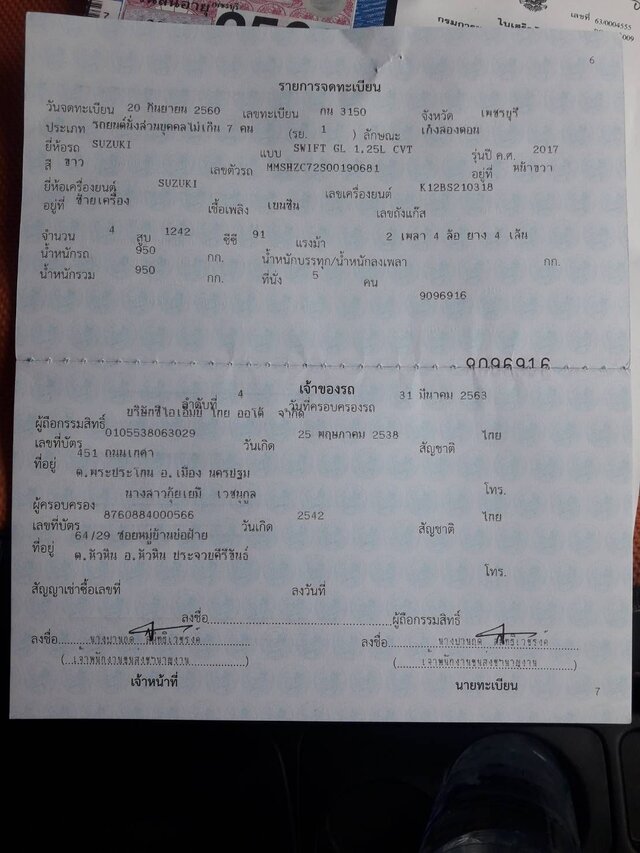 เลขที่ 63/0004555
6
รายการจดทะเบียน
วันจดทะเบียน 20 กันยายน 2560 เลขทะเบียน กน 3150 จังหวัด เพชรบุรี
ประเภท รถยนต์นั่งส่วนบุคคลไม่เกิน 7 คน (รย. 1 ) ลักษณะ เก๋งสองตอน
ยี่ห้อรถ SUZUKI แบบ SWIFT GL 1.25L CVT รุ่นปี ค.ศ. 2017
สี ขาว เลขตัวรถ MMSHZC72S00190681 อยู่ที่ หน้าขวา
ยี่ห้อเครื่องยนต์ SUZUKI เลขเครื่องยนต์ K12BS210318
อยู่ที่ ซ้ายเครื่อง เชื้อเพลิง เบนซิน เลขถังแก๊ส
จำนวน 4 สูบ 1242 ซีซี 91 แรงม้า 2 เพลา 4 ล้อ ยาง 4 เส้น
น้ำหนักรถ 950 กก. น้ำหนักบรรทุก/น้ำหนักลงเพลา กก.
น้ำหนักรวม 950 กก. ที่นั่ง 5 คน
9096916
9096916
เจ้าของรถ
ลำดับที่ 4 วันที่ครอบครองรถ 31 มีนาคม 2563
ผู้ถือกรรมสิทธิ์ บริษัทซีไอเอ็มบี ไทย ออโต้ จำกัด
เลขที่บัตร 0105538063029 วันเกิด 25 พฤษภาคม 2538 สัญชาติ ไทย
ที่อยู่ 451 ถนนเทศา
ต.พระประโทน อ.เมือง นครปฐม
โทร.
ผู้ครอบครอง นางสาวกุ้ยเยมี เวชนุกูล
เลขที่บัตร 8760884000566 วันเกิด 2542 สัญชาติ ไทย
ที่อยู่ 64/29 ซอยหมู่บ้านบ่อฝ้าย
ต.หัวหิน อ.หัวหิน ประจวบคีรีขันธ์
โทร.
สัญญาเช่าซื้อเลขที่ ลงวันที่
ลงชื่อ ผู้ถือกรรมสิทธิ์
ลงชื่อ ลงชื่อ
(เจ้าพนักงานขนส่งชำนาญงาน) (เจ้าพนักงานขนส่งชำนาญงาน)
เจ้าหน้าที่ นายทะเบียน
7